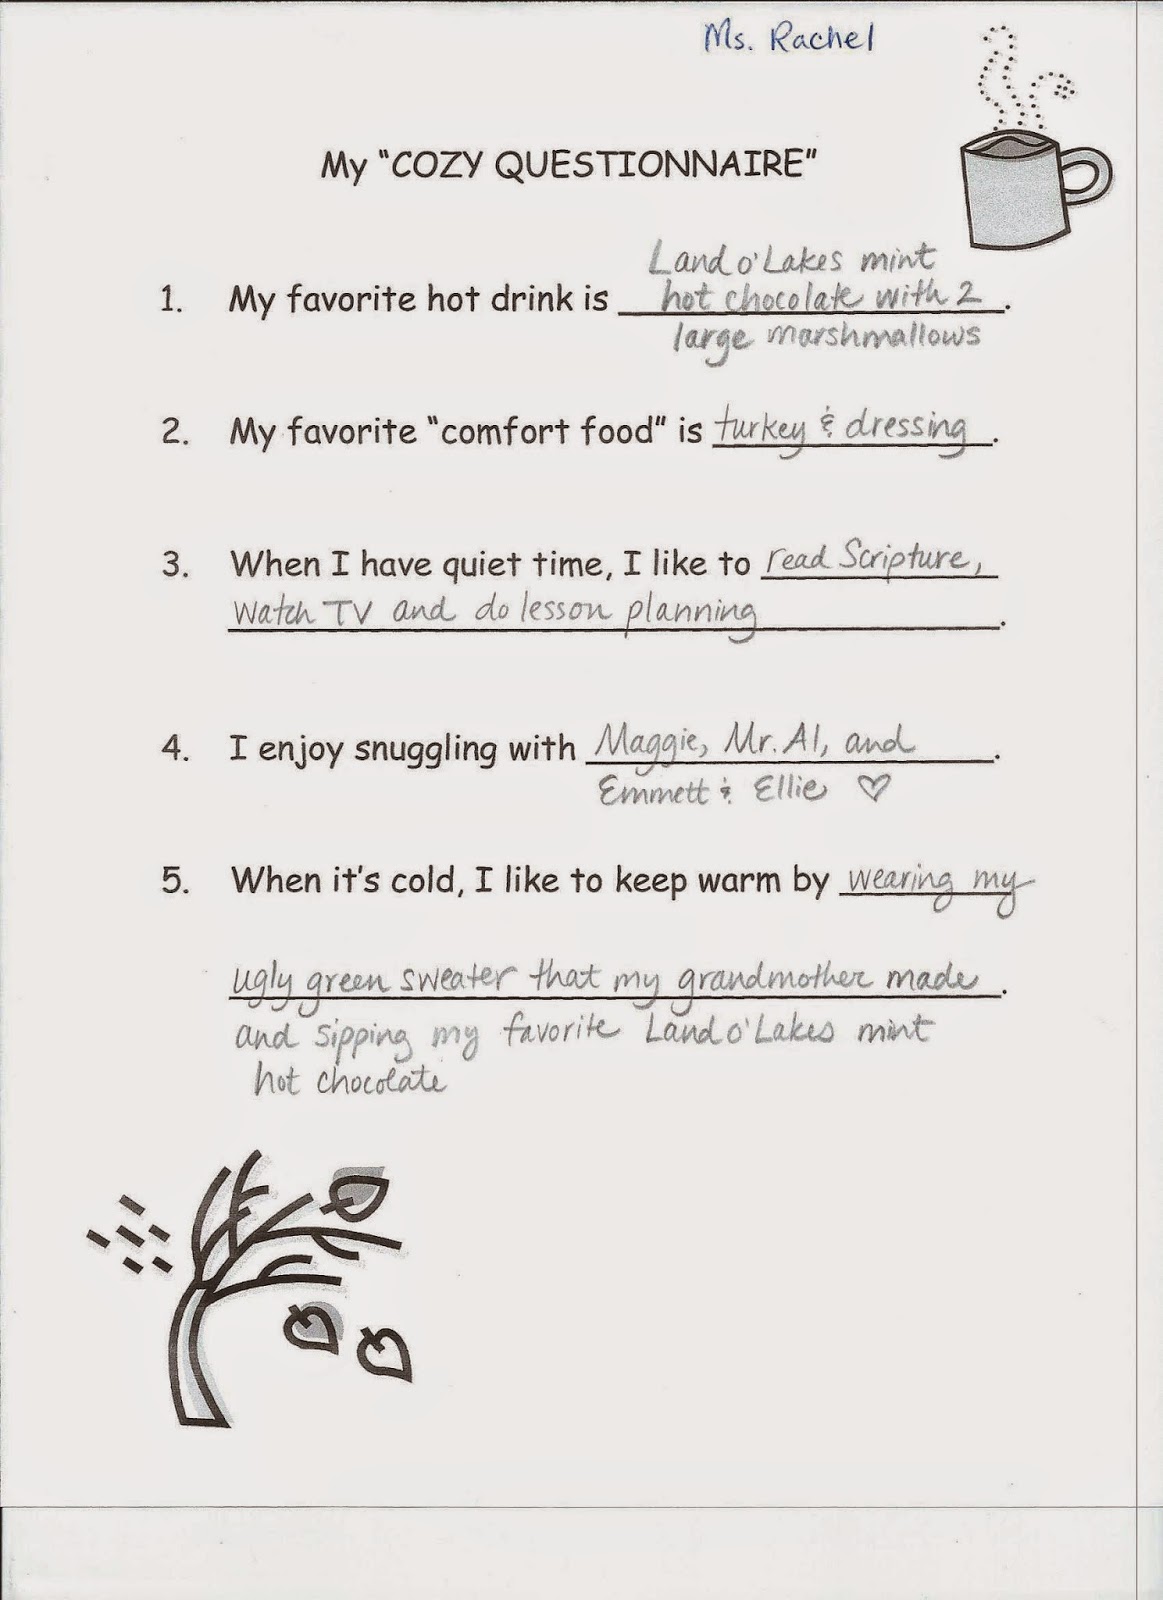 Ms. Rachel
My "COZY QUESTIONNAIRE"
Land o'Lakes mint
1. My favorite hot drink is hot chocolate with 2.
large marshmallows
2. My favorite "comfort food" is turkey & dressing.
3. When I have quiet time, I like to read Scripture,
watch TV and do lesson planning.
4. I enjoy snuggling with Maggie, Mr. Al, and.
Emmett & Ellie ♡
5. When it's cold, I like to keep warm by wearing my
ugly green sweater that my grandmother made.
and sipping my favorite Land o'Lakes mint
hot chocolate